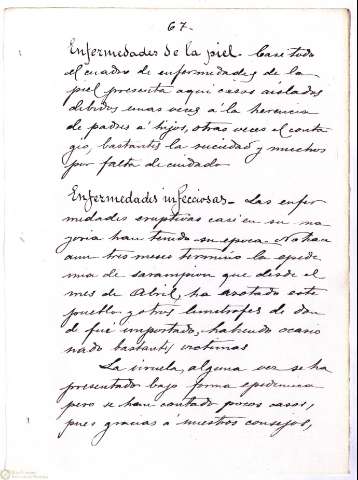 67-
Enfermedades de la piel - Casi todo
el cuadro de enfermedades de la
piel presenta aqui casos aislados
debidos unas veces á la herencia
de padres á hijos, otras veces el conta
gio, bastantes la suciedad y muchos
por falta de cuidado
Enfermedades infecciosas - Las enfer
medades eruptivas casi en su ma
yoria han tenido su epoca. No hace
aun tres meses terminó la epide
mia de sarampion que desde el
mes de Abril, ha azotado este
pueblo y otros limitrofes de don
de fué importado, habiendo ocasio
nado bastantes victimas
La viruela, alguna vez se ha
presentado bajo forma epidemica
pero se han contado pocos casos,
pues gracias á nuestros consejos,